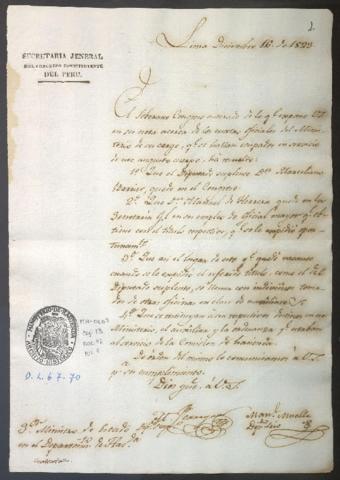 2
Lima Diciembre 16 de 1823
SECRETARIA JENERAL
DEL CONGRESO CONSTITUYENTE
DEL PERU.
El Soberano Congreso enterado de lo q. expone US.
en su nota acerca de los oficiales del Minis-
terio de su cargo, q. se hallan ocupados en servicio
de este augusto cuerpo, ha resuelto:
1º Que el Diputado suplente Dn. Marcelino
Barrios, quede en el Congreso
2º Que Dn. Manuel de Herrera quede en la
Secretaría Jl. en su empleo de oficial mayor q. ob-
tiene con el título respectivo, q. se le expidió opor-
tunamte.
3º Que en el lugar de este q. quedó vacante
cuando se le expidió el referido título, como el del
Diputado suplente, se llenen con individuos toma-
dos de otras oficinas en clase de
4º Que se restituyan a sus respectivos destinos en ese
Ministerio, el auxiliar y la ordenanza q. estaban
al servicio de la Comision de hacienda.
De orden del mismo lo comunicamos a U.S.
pa. su cumplimiento.
Dios gue. a U.S.
Manl. Muelle
Dipdo. Srio.
Sr. Ministro de Estado
en el Departamto. de Hacda.
O.L. 67-70